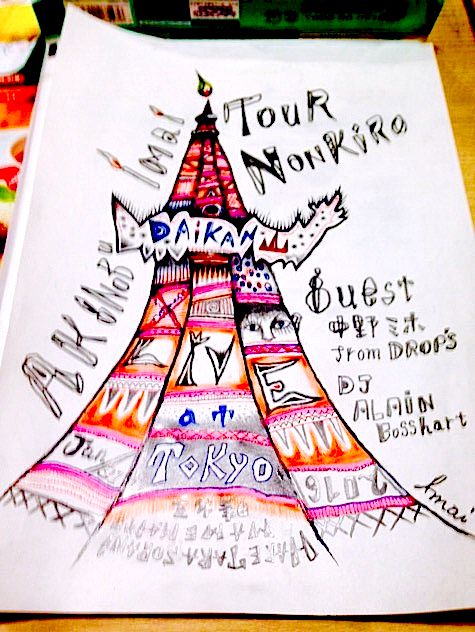 TOUR
NONKiRO
AKiNOBU Imai
DAiKANU
LiVE
at
TOKYO
Jan
2016
Guest
中野ミホ
from DROP'S
DJ
ALAiN
Bosshart
HARETARA SORANI
Imai